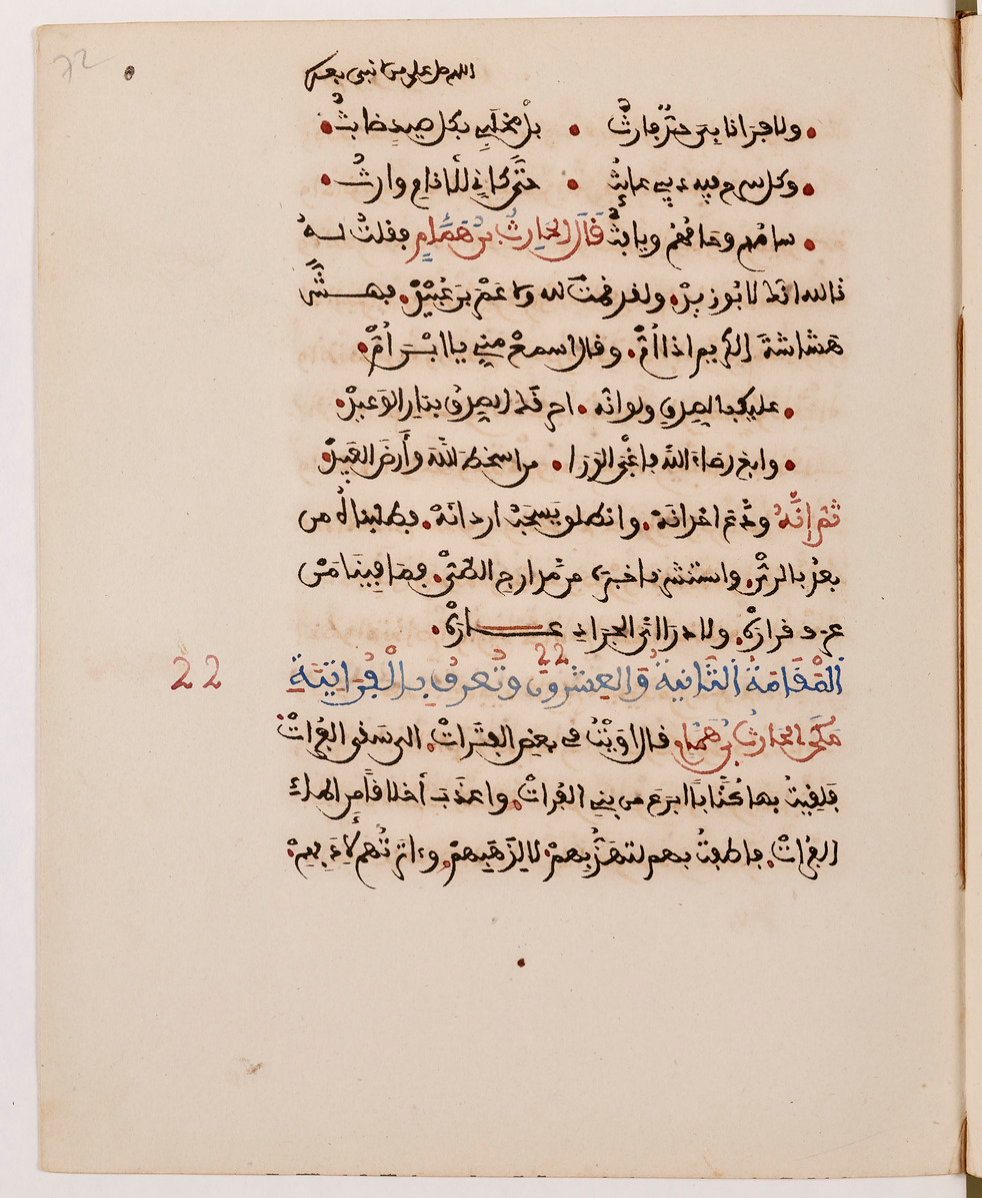 72
اللهم صل على من لا نبي بعده
ولا فرى نابي حد فارث • بل مخلبي بكل صيد ضابث
وكل سرح فيه ذيبي عايث • حتى كاني للانام وارث
سامهم وحامهم ويافث قال الحارث بن همام فقلت له
تالله انك لابو زيد. ولقد قمت لله ولا عمرو بن عبيد. فهش
هشاشة الكريم اذا ام. وقال اسمع مني يا ابن ام.
عليك بالصدق ولو انه • احرقك الصدق بنار الوعيد.
وابغ رضاء الله فاغبى الورا • من اسخط الله وأرضى العبيد
ثم انه ودع اخدانه. وانطلق يسحب اردانه. فطلبناه من
بعد بالري. واستنشرنا خبره من مدارج الطي. فما فينا من
عرف قراره. ولا درا اي الجراد عاره.
المقامة الثانية والعشرون وتعرف بالفراتية
22
22
حكى الحارث بن همام قال اويت في بعض الفترات. الى سقي الفرات
فلقيت بها كتابا ابرع من بني الفرات. واعذب أخلاقا من الماء
الفرات. فاطفت بهم لتهذبهم. لا لذهبهم. وكاثرتهم لأدبهم.